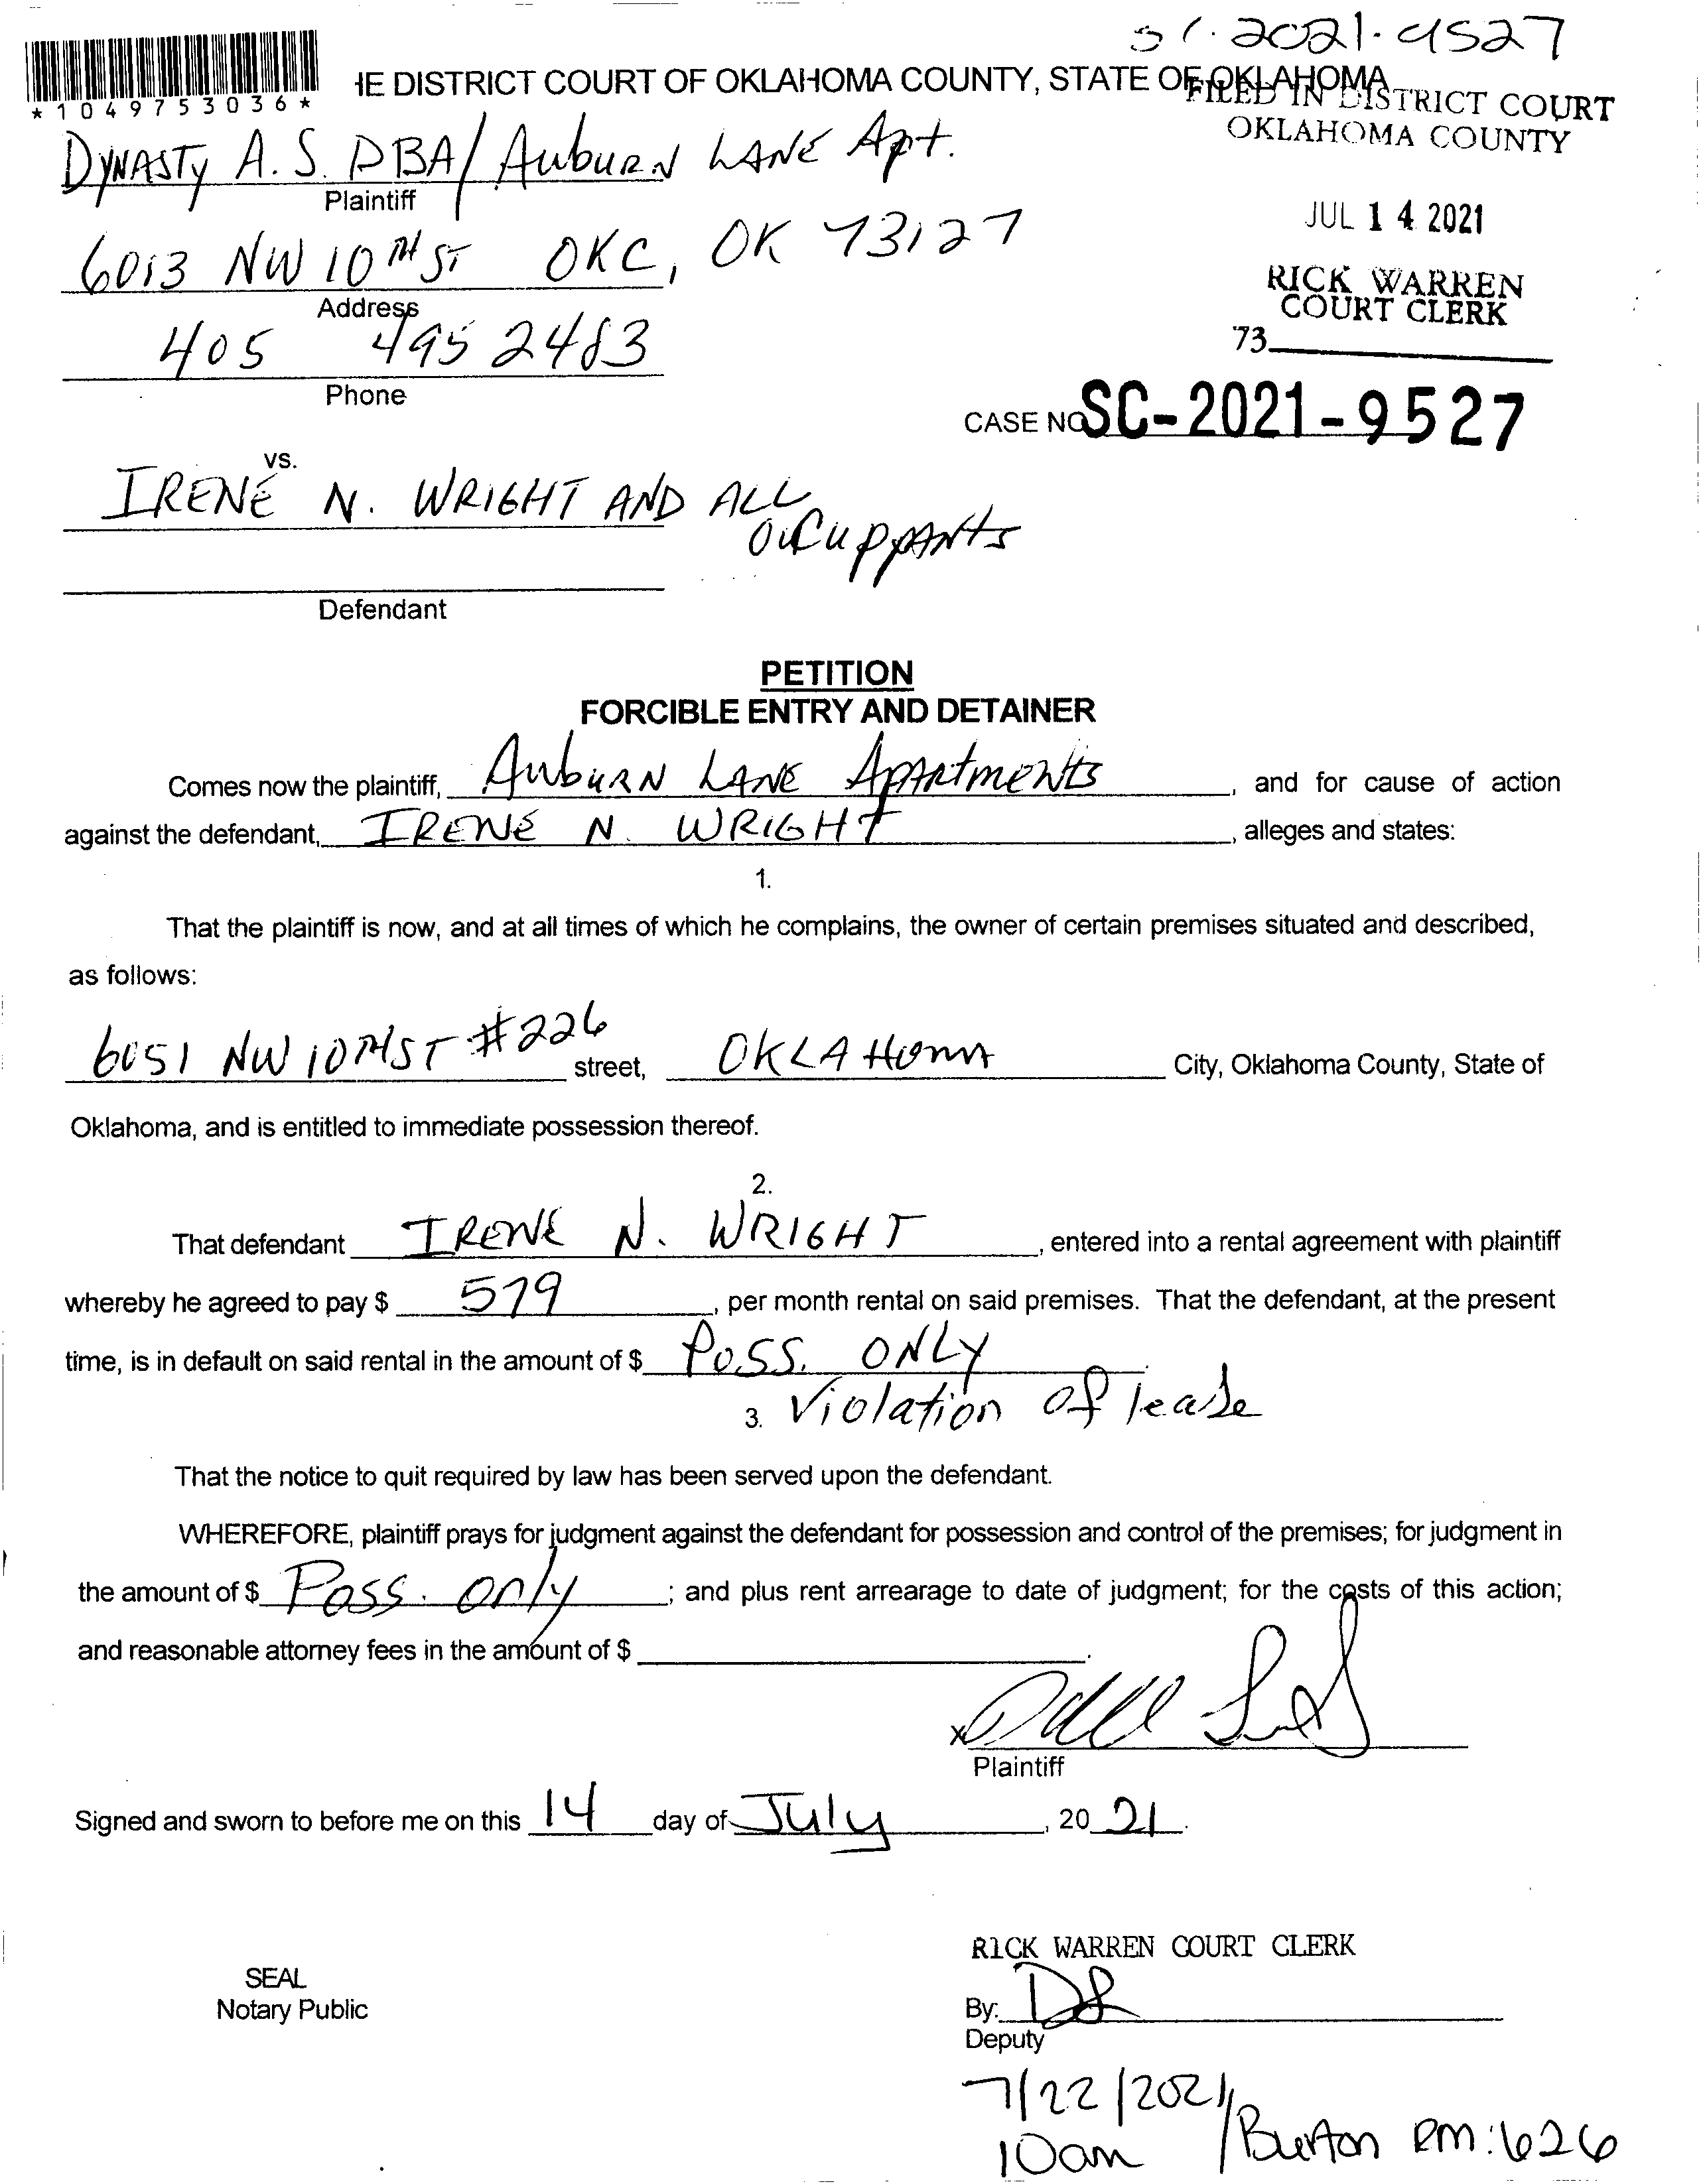 SC-2021-9527
*1049753036*
HE DISTRICT COURT OF OKLAHOMA COUNTY, STATE OF OKLAHOMA
FILED IN DISTRICT COURT
OKLAHOMA COUNTY
DYNASTY A.S. DBA/ AUBURN LANE Apt.
Plaintiff
JUL 14 2021
6013 NW 10TH ST OKC, OK 73127
Address
RICK WARREN
COURT CLERK
73
405 495 2483
Phone
CASE NO SC-2021-9527
vs.
IRENE N. WRIGHT AND ALL
OCCUPPANTS
Defendant
PETITION
FORCIBLE ENTRY AND DETAINER
Comes now the plaintiff, AUBURN LANE APARTMENTS, and for cause of action
against the defendant, IRENE N. WRIGHT, alleges and states:
1.
That the plaintiff is now, and at all times of which he complains, the owner of certain premises situated and described,
as follows:
6051 NW 10TH ST #226 street, OKLAHOMA City, Oklahoma County, State of
Oklahoma, and is entitled to immediate possession thereof.
2.
That defendant IRENE N. WRIGHT, entered into a rental agreement with plaintiff
whereby he agreed to pay $ 579, per month rental on said premises. That the defendant, at the present
time, is in default on said rental in the amount of $ POSS. ONLY
3. Violation of lease
That the notice to quit required by law has been served upon the defendant.
WHEREFORE, plaintiff prays for judgment against the defendant for possession and control of the premises; for judgment in
the amount of $ Poss. only; and plus rent arrearage to date of judgment; for the costs of this action;
and reasonable attorney fees in the amount of $ .
x
Plaintiff
Signed and sworn to before me on this 14 day of July, 20 21.
RICK WARREN COURT CLERK
SEAL
Notary Public
By:
Deputy
7/22/2021
10am / Burton RM: 626